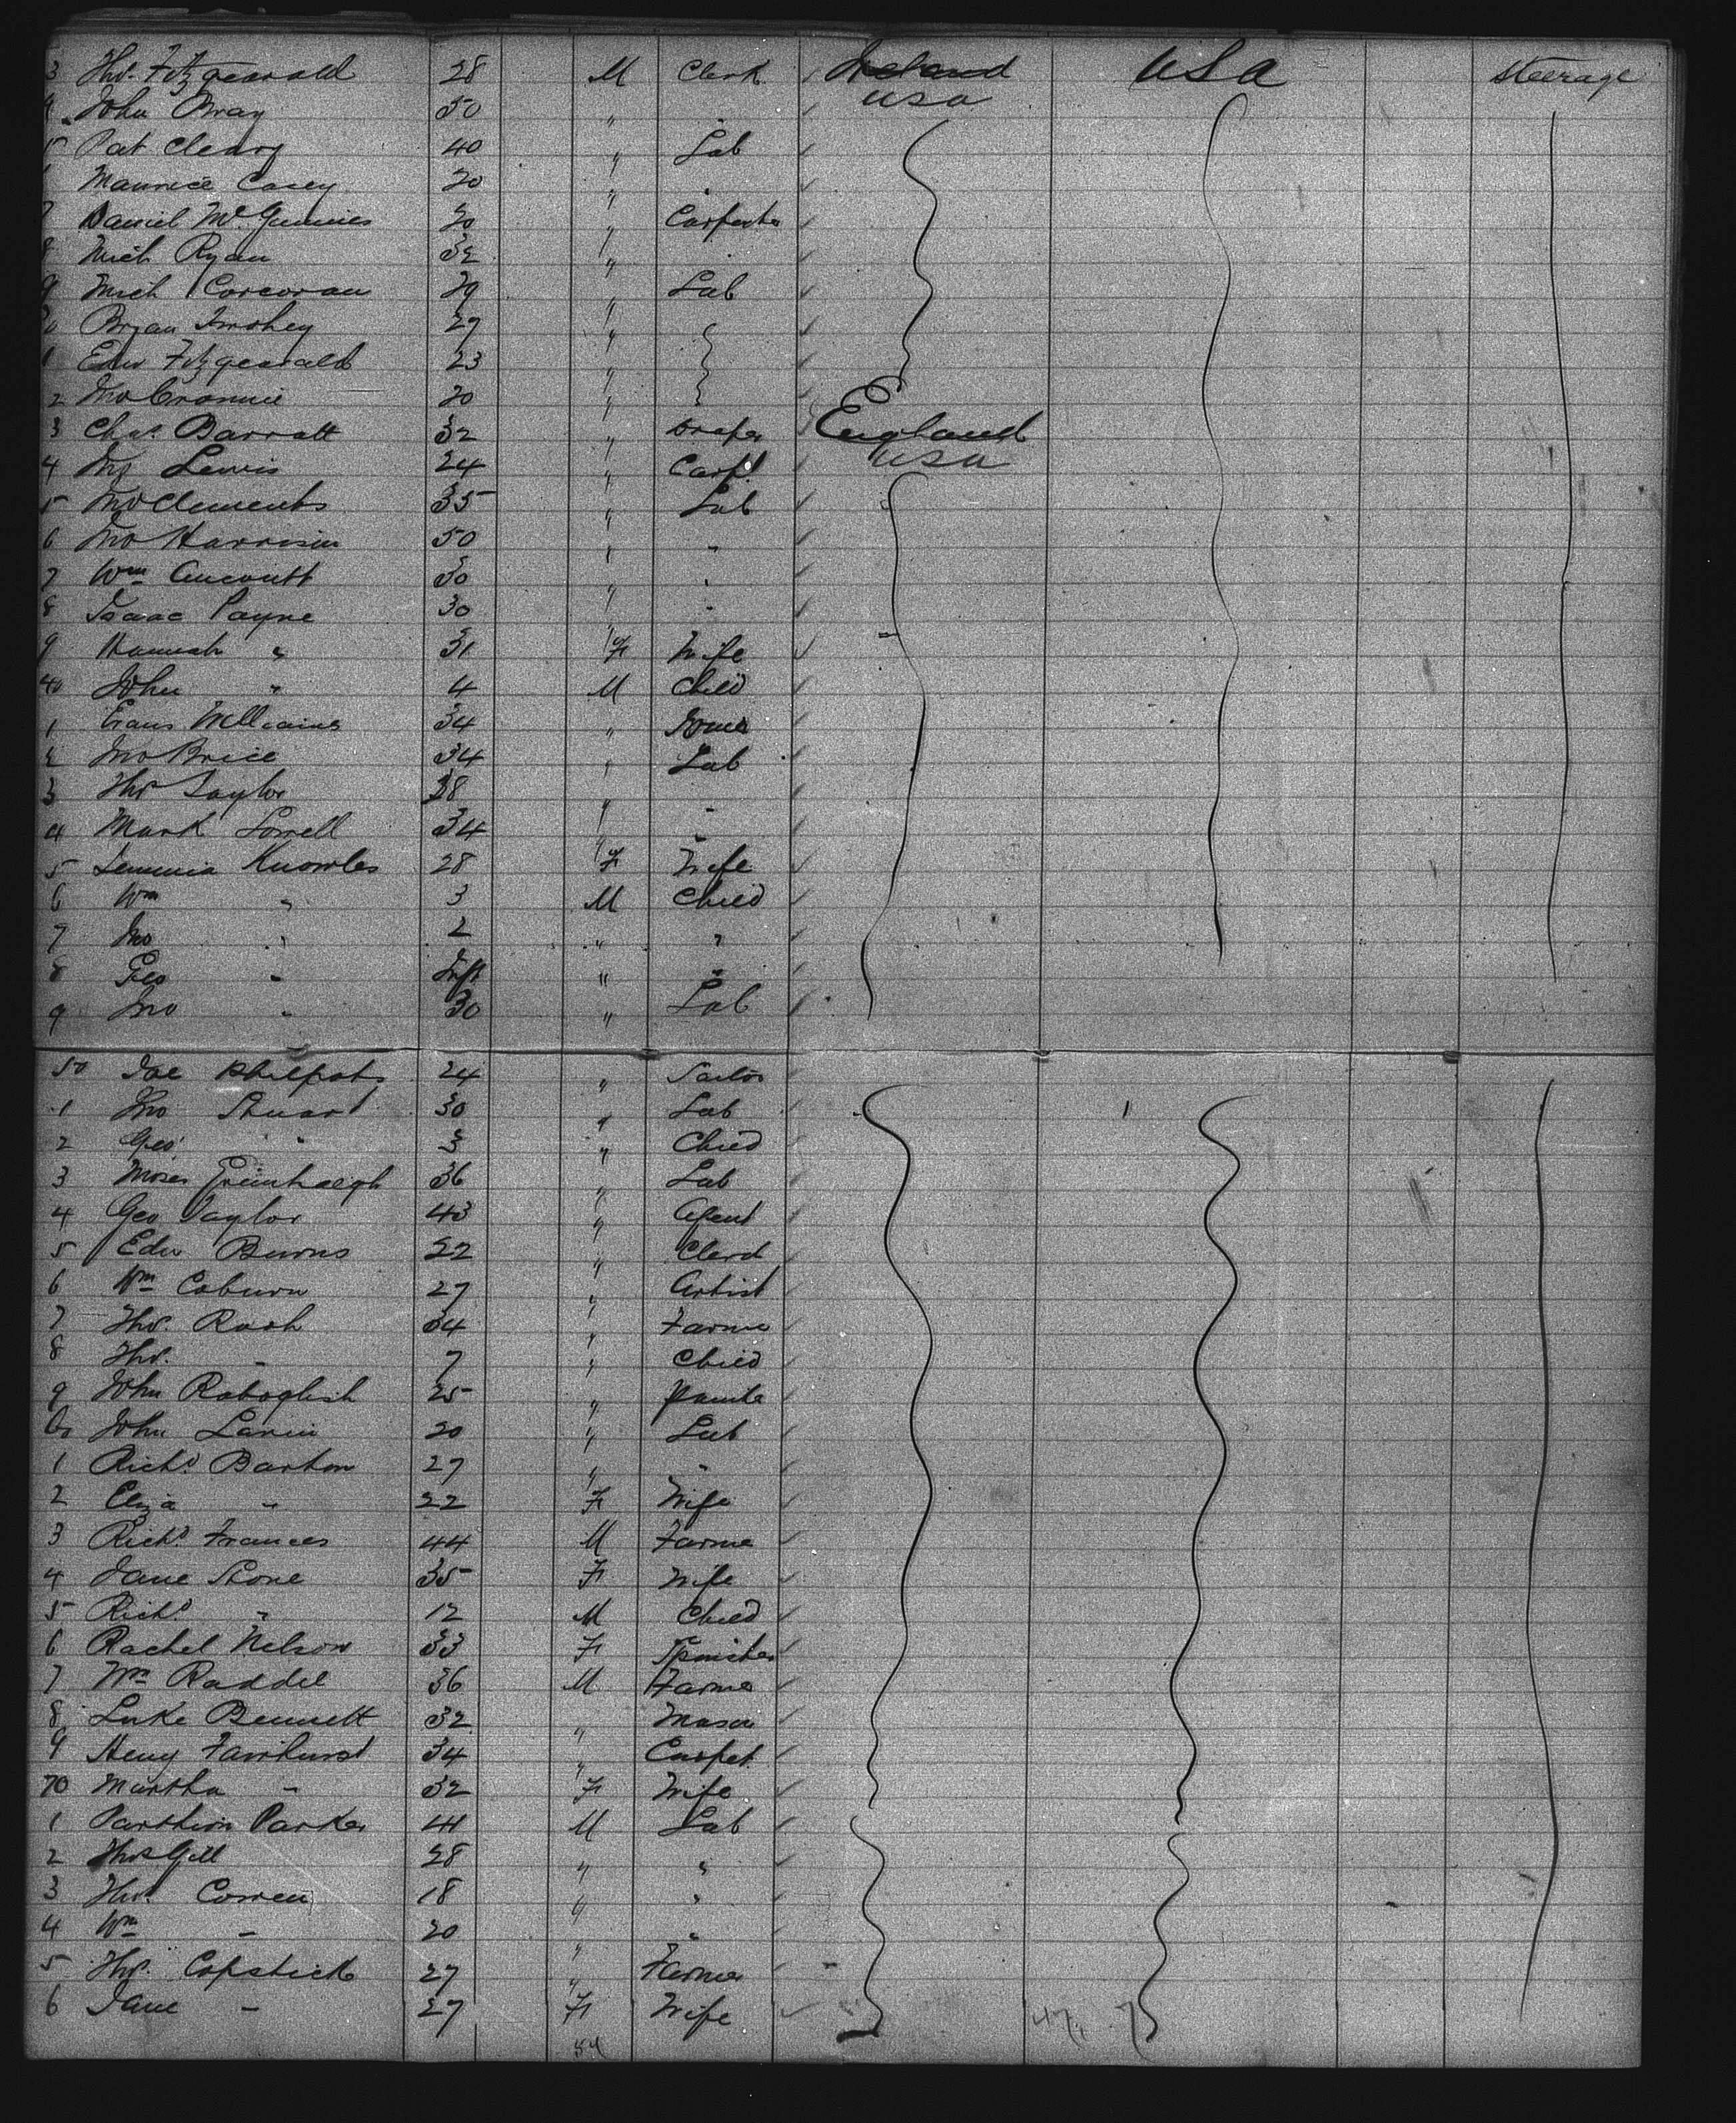 3 Tho. Fitzgearald 28 M Clerk Ireland USA steerage
USA
John Bray 50 " "
5 Pat Cleary 40 " Lab
Maurice Casey 20 " "
7 Daniel Mc 20 " Carpenter
8 Mich Ryan 32 " "
9 Mich Corcoran 29 " Lab
Bryan 27 "
1 Edw Fitzgearald 23 "
2 Jno 20 "
3 Chas. Barratt 32 " Draper England
4 Lewis 24 " Carpt. USA
5 Jno Clements 35 " Lab
6 Jno Harrison 50 " "
7 Wm 30 " "
8 Isaac Payne 30 " "
9 Hannah " 31 F Wife
40 John " 4 M Child
1 Evans Williams 34 "
2 Jno Brice 34 " Lab
3 Tho Taylor 38 " "
4 Mark 34 " "
5 Knowles 28 F Wife
6 Wm " 3 M Child
7 Jno " 2 " "
8 Geo " Inft " "
9 Jno " 30 " Lab
50 Joe Philpots 24 "
1 Jno Stuart 30 " Lab
2 Geo " 3 " Child
3 Moses Greenhalgh 36 " Lab
4 Geo Taylor 43 " Agent
5 Edw Burns 22 " Clerk
6 Wm Coburn 27 " Artist
7 Tho. Rush 34 " Farme
8 Tho. " 7 " Child
9 John 25 " Painte
60 John 20 " Lab
1 Richd. Barton 27 " "
2 Eliza " 22 F Wife
3 Richd. Frances 44 M Farme
4 Jane Stone 35 F Wife
5 Richd. " 12 M Child
6 Rachel Nelson 33 F Spinster
7 Wm Raddel 36 M Farme
8 Luke Bennett 32 " Mason
9 Heny Fairhurst 34 " Carpet
70 Martha " 32 F Wife
1 Parker 41 M Lab
2 Thos Gill 28 " "
3 Tho. Cowen 18 " "
4 Wm " 20 " "
5 Tho. Copstick 27 " Farmer
6 Jane " 27 F Wife